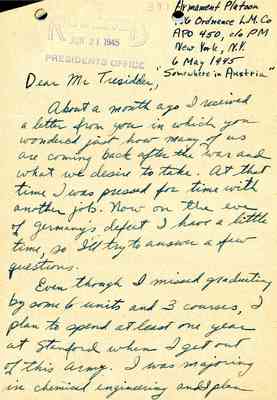 RECEIVED
JUN 21 1945
PRESIDENTS OFFICE
Armament Platoon
Ordnance
APO 450, c/o PM
New York, N.Y.
6 May 1945
"Somewhere in Austria"
Dear Mr Tresidder,
About a month ago I received
a letter from you in which you
wondered just how many of us
are coming back after the war and
what we desire to take. At that
time I was pressed for time with
another job. Now on the eve
of Germany's defeat I have a little
time, so I'll try to answer a few
questions.
Even though I missed graduating
by some 6 units and 3 courses, I
plan to spend at least one year
at Stanford when I get out
of this army. I was majoring
in chemical engineering and plan